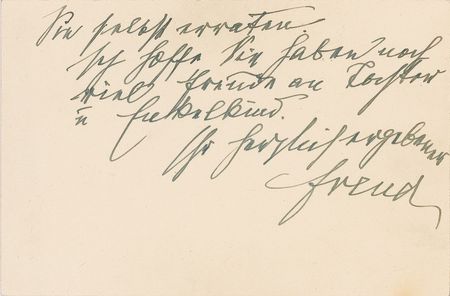 Sie selbst erraten.
Ich hoffe Sie haben noch
viel Freude an Tochter
u Enkelkind.
Ihr herzlich ergebener
Freud